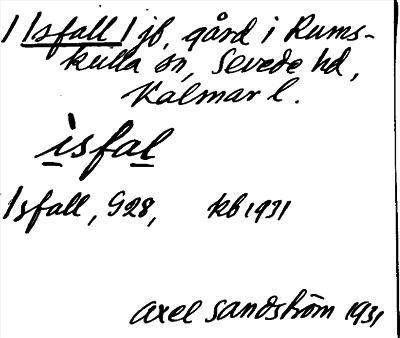 / Isfall / jb, gård i Rums-
kulla sn, Sevede hd,
Kalmar l.
isfal
Isfall, G28, kb 1931
Axel Sandström 1931